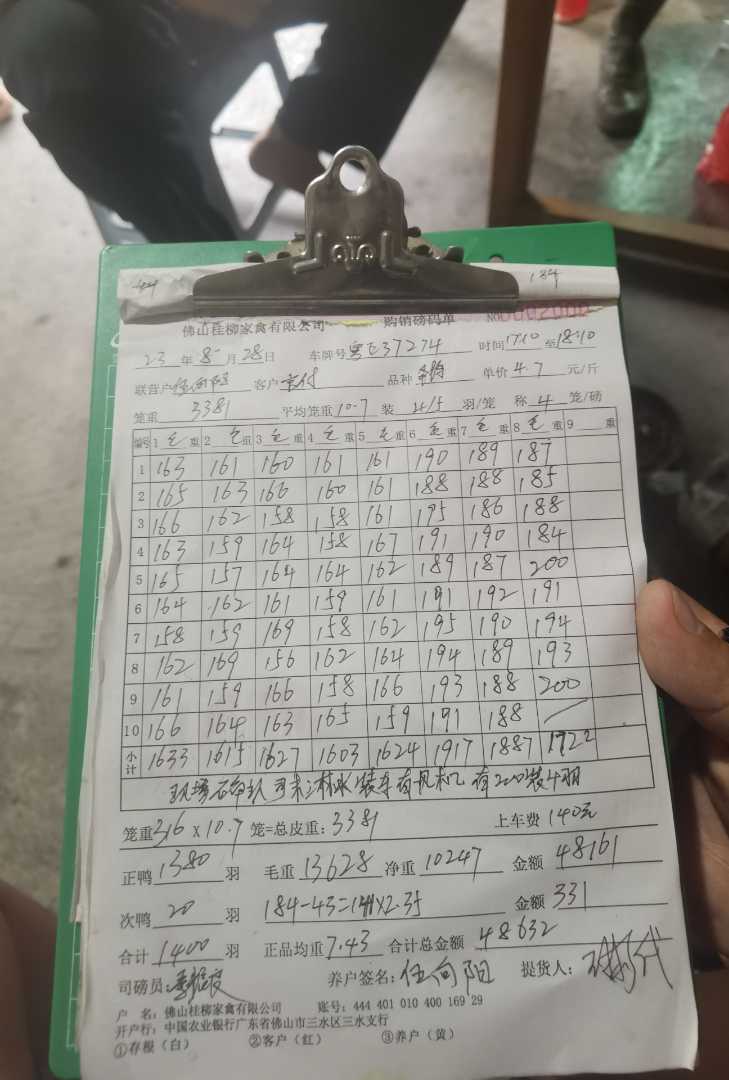 184
佛山桂柳家禽有限公司 购销磅码单 NO
23 年 8 月 28 日 车牌号 粤E37274 时间 17:10 至 18:10
联营户 任向阳 客户 品种 单价 4.7 元/斤
笼重 3381 平均笼重 10.7 装 4/5 羽/笼 称 4 笼/磅
编号 1 毛 重 2 毛 重 3 毛 重 4 毛 重 5 毛 重 6 毛 重 7 毛 重 8 毛 重 9 重
1 163 161 160 161 161 190 189 187
2 165 163 166 160 161 188 188 185
3 166 162 158 158 161 195 186 188
4 163 159 164 158 167 191 190 184
5 165 157 164 164 162 189 187 200
6 164 162 161 159 161 191 192 191
7 158 159 169 158 162 195 190 194
8 162 169 156 162 164 194 189 193
9 161 159 166 158 166 193 188 200
10 166 164 163 165 159 191 188
小计 1633 1615 1627 1603 1624 1917 1887 1722
淋水 装车有风机 有200装4羽
笼重 316 x 10.7 笼=总皮重: 3381 上车费 140元
正鸭 1380 羽 毛重 13628 净重 10247 金额 48161
次鸭 20 羽 184-43=141x2.35 金额 331
合计 1400 羽 正品均重 7.43 合计总金额 48632
司磅员: 养户签名: 任向阳 提货人:
户 名: 佛山桂柳家禽有限公司 账号: 444 401 010 400 169 29
开户行: 中国农业银行广东省佛山市三水区三水支行
①存根(白) ②客户(红) ③养户(黄)